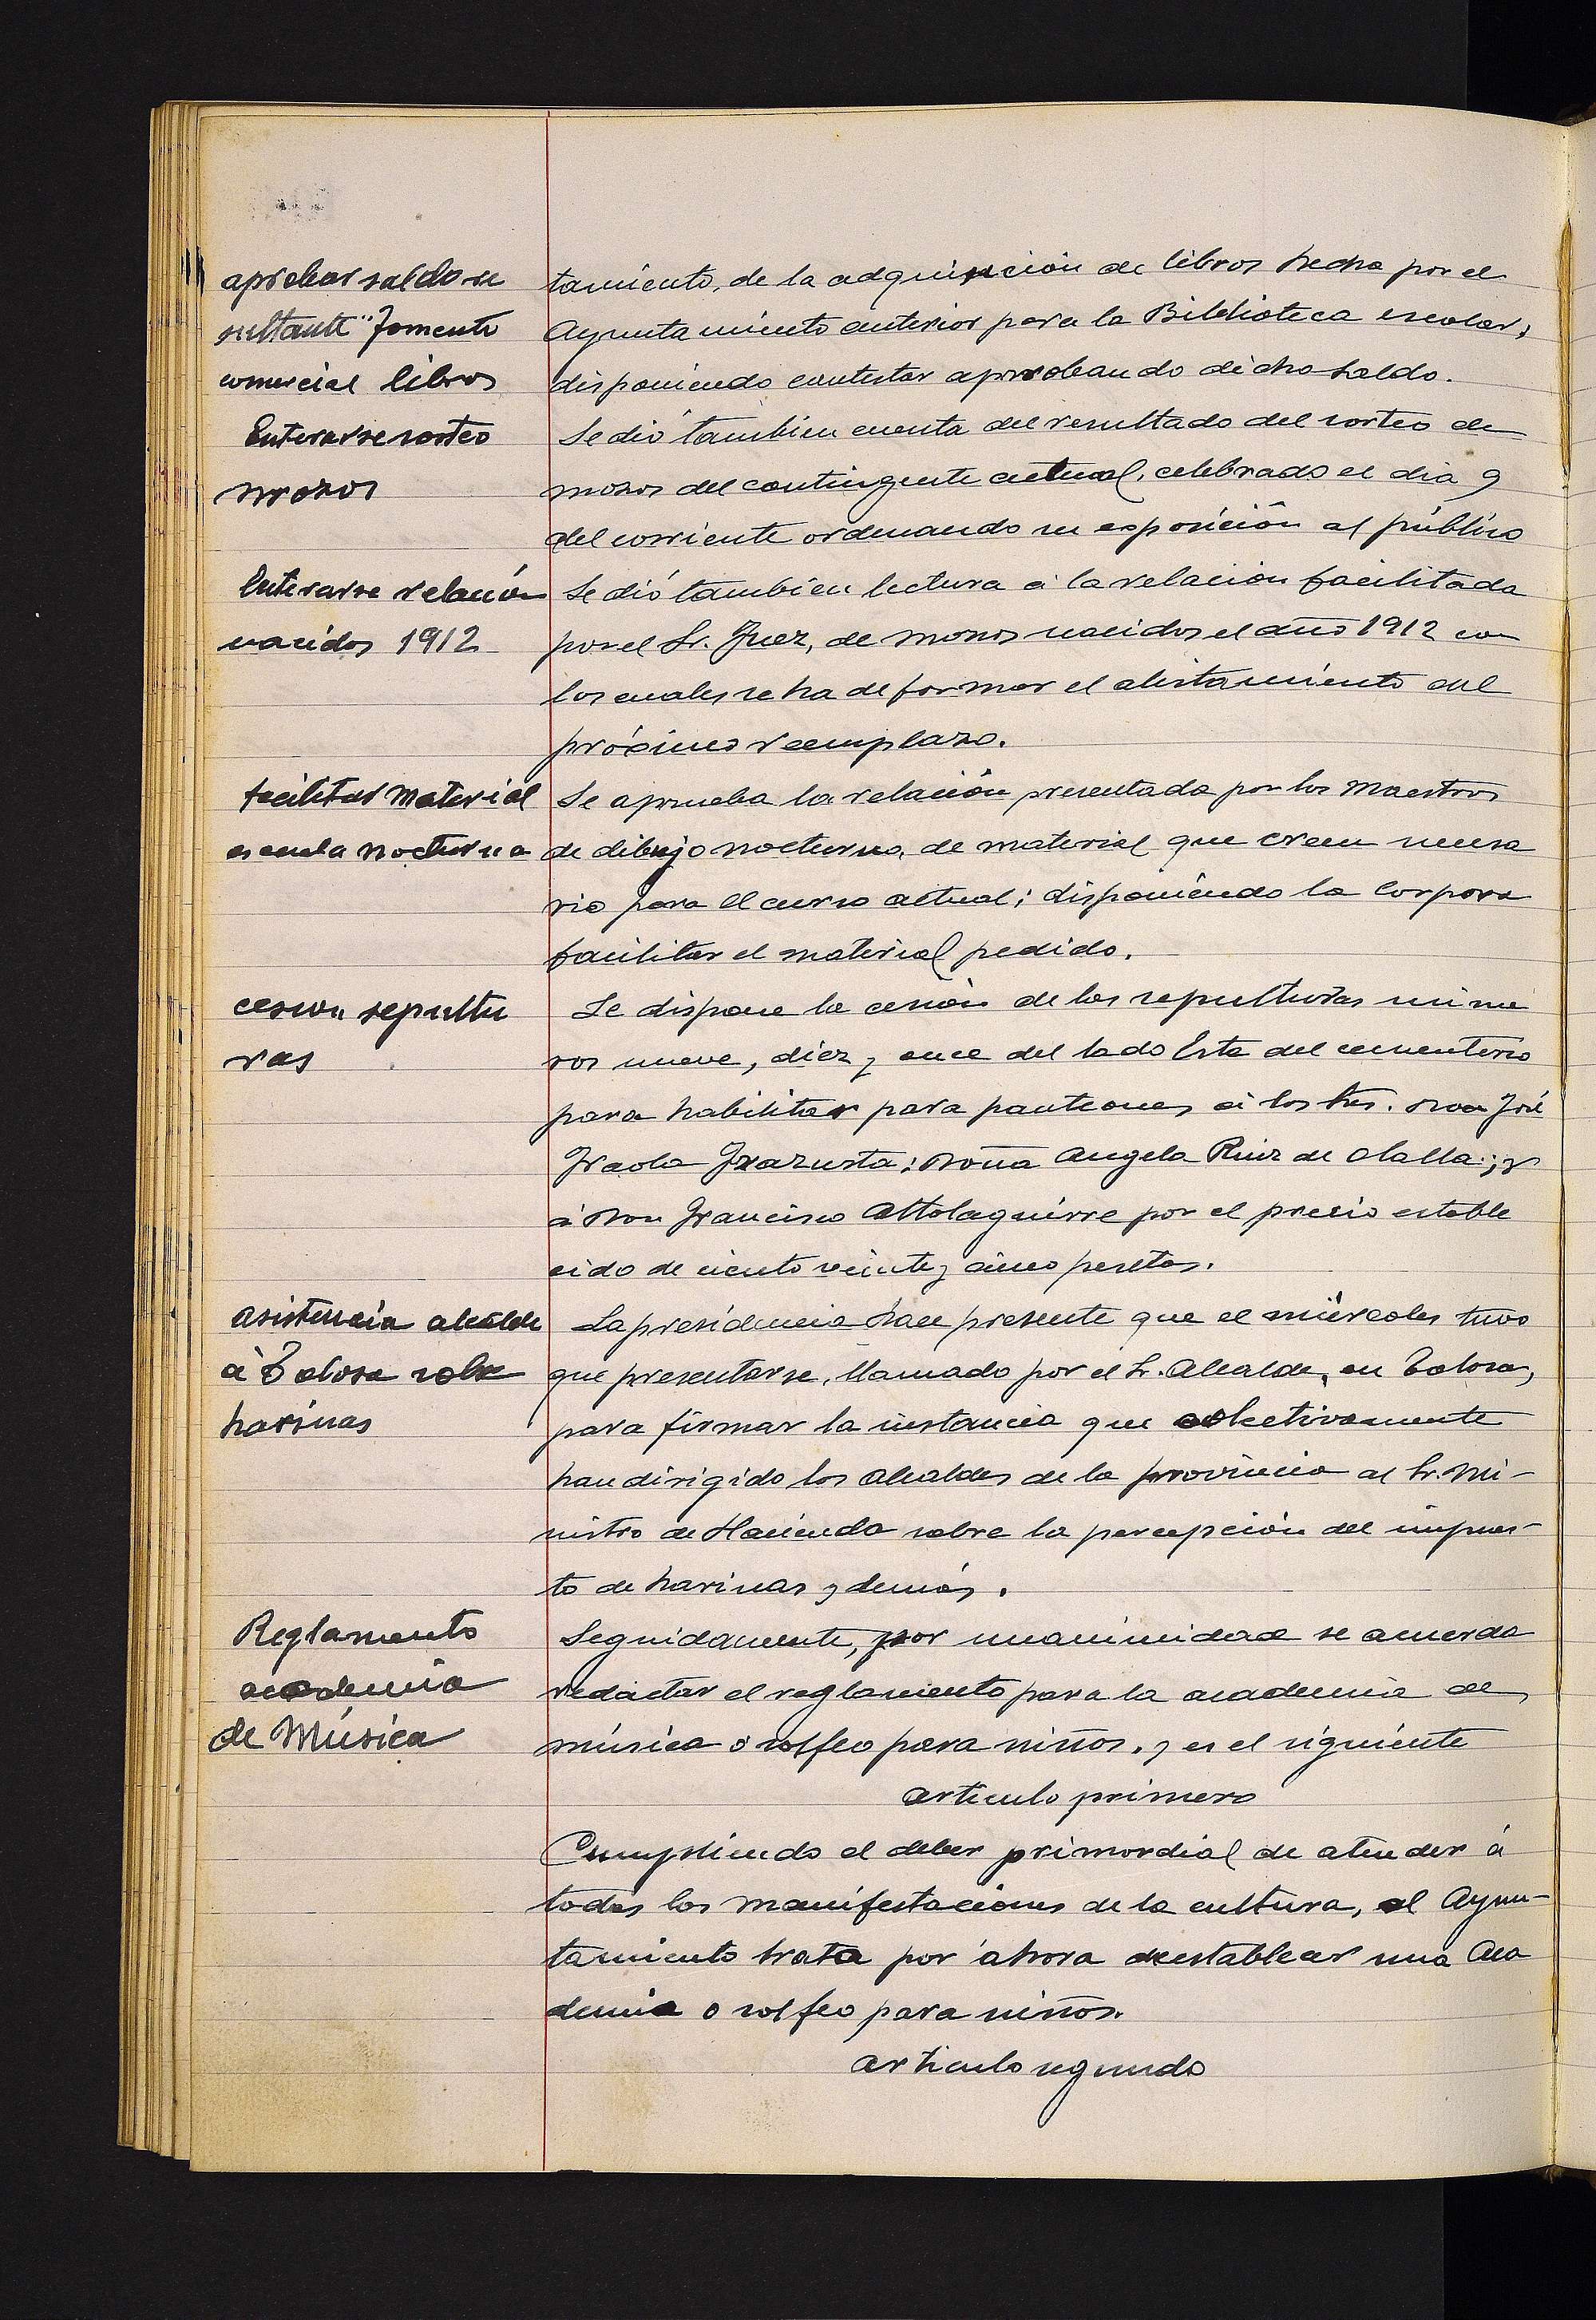 aprobar saldo re
sultante "Fomento
comercial libros
tamiento, de la adquisición de libros hecha por el
Ayuntamiento anterior para la Biblioteca escolar,
disponiendo contestar aprobando dicho saldo.
Enterarse sorteo
mozos
Se dió también cuenta del resultado del sorteo de
mozos del contingente actual, celebrado el dia 9
del corriente ordenando su esposición al público
Enterarse relación
nacidos 1912
Se dió también lectura á la relación facilitada
por el Sr. Juez, de mozos nacidos el año 1912 con
los cuales se ha de formar el alistamiento del
próximo reemplazo.
facilitar material
escuela nocturna
Se aprueba la relación presentada por los Maestros
de dibujo nocturno, de material que creen necesa
rio para el curso actual; disponiendo la Corpora
facilitar el material pedido.
cesion sepultu
ras
Se dispone la cesión de las sepulturas núme
ros nueve, diez y once del lado Este del cementerio
para habilitar para panteones á los Sres. Don José
Iraola Irazusta; Doña Angela Ruiz de Olalla; y
á Don Francisco Altolaguirre por el precio estable
cido de ciento veinte y cinco pesetas.
asistencia alcalde
á Tolosa sobre
harinas
La presidencia hace presente que el miércoles tuvo
que presentarse, llamado por el Sr. Alcalde, en Tolosa,
para firmar la instancia que colectivamente
han dirigido los Alcaldes de la provincia al Sr. Mi-
nistro de Hacienda sobre la percepción del impues-
to de harinas y demás.
Reglamento
academia
de Música
Seguidamente, por unanimidad se acuerda
redactar el reglamento para la academia de
música ó solfeo para niños, y es el siguiente
artículo primero
Cumpliendo el deber primordial de atender á
todas las manifestaciones de la cultura, el Ayun-
tamiento trata por ahora de establecer una Aca
demia o solfeo para niños.
artículo segundo